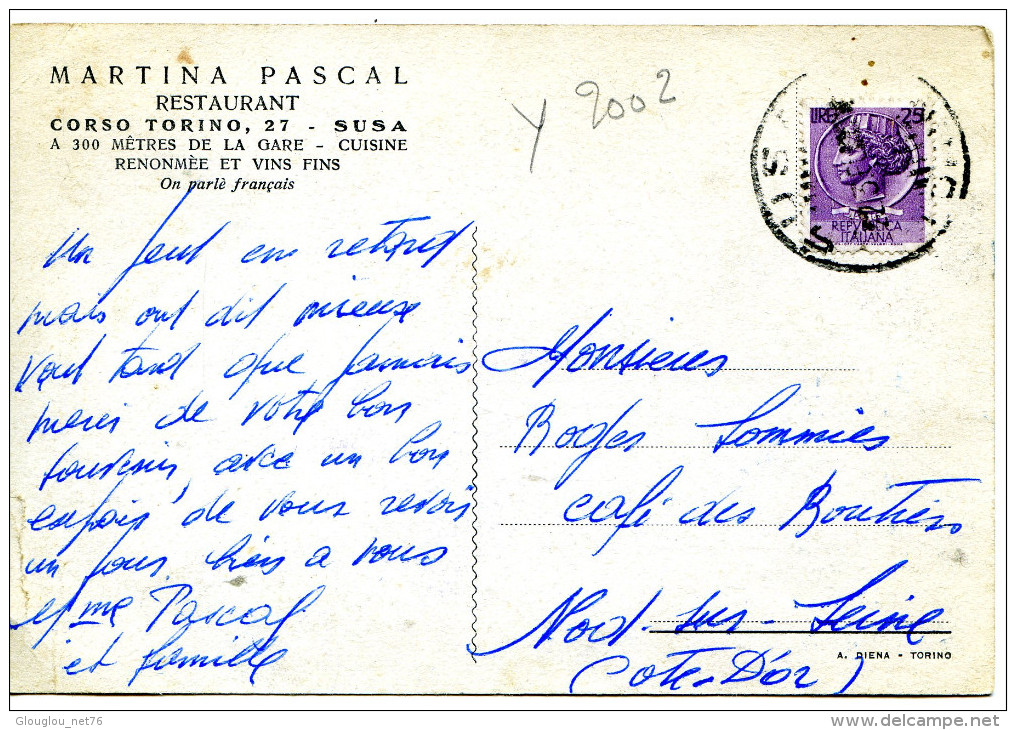 MARTINA PASCAL
RESTAURANT
CORSO TORINO, 27 - SUSA
A 300 MÊTRES DE LA GARE - CUISINE
RENONMÈE ET VINS FINS
On parlè français
Y 9002
LIRE 25
REPVBBLICA
ITALIANA
SUSA
Un peut en retard
mais ont dit mieux
vout tard que jamais
merci de votre bon
souvenir, avec un bon
espoir de vous revoir
un jour bien a vous
et Mme Pascal
et famille
Monsieur
Roger Sommier
café des Routiers
Nod-sur-Seine
(Cote-D'or)
A. DIENA - TORINO
Glouglou_net76
delcampe.net